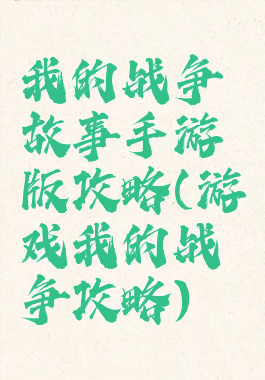 我的战争
故事手游
版攻略(游
戏我的战
争攻略)